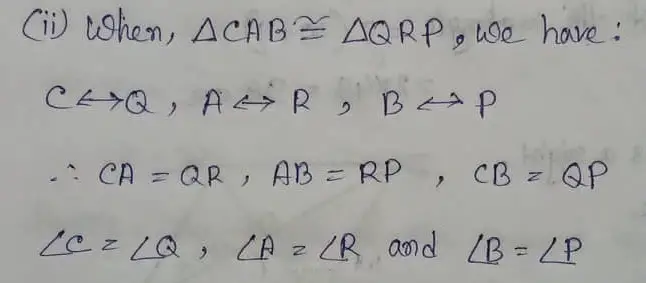 (ii) When, △CAB ≅ △QRP, we have:
C ↔ Q, A ↔ R, B ↔ P
∴ CA = QR, AB = RP, CB = QP
∠C = ∠Q, ∠A = ∠R and ∠B = ∠P